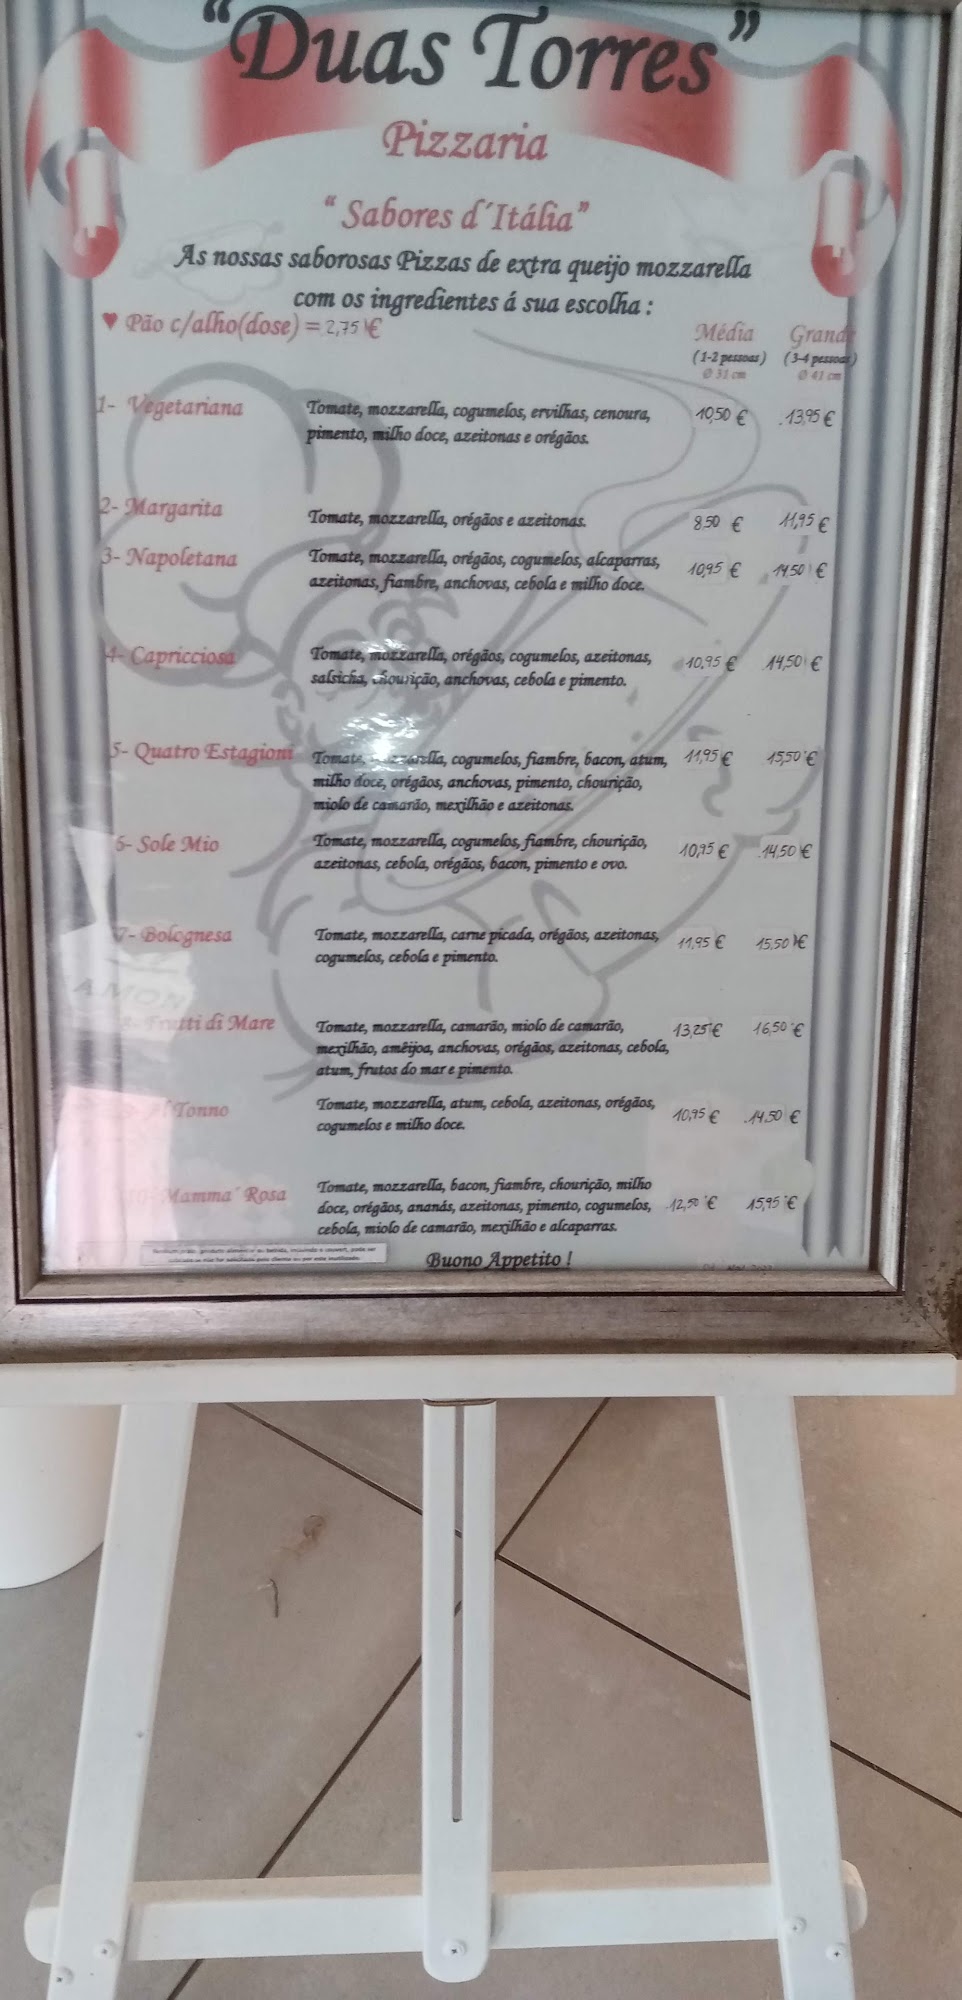 “Duas Torres”
Pizzaria
“ Sabores d´Itália”
As nossas saborosas Pizzas de extra queijo mozzarella
com os ingredientes á sua escolha :
♥ Pão c/alho(dose) = 2,75 €
Média Grande
(1-2 pessoas) (3-4 pessoas)
Ø 31 cm Ø 41 cm
1- Vegetariana Tomate, mozzarella, cogumelos, ervilhas, cenoura, 10,50 € 13,95 €
pimento, milho doce, azeitonas e orégãos.
2- Margarita Tomate, mozzarella, orégãos e azeitonas. 8,50 € 11,95 €
3- Napoletana Tomate, mozzarella, orégãos, cogumelos, alcaparras, 10,95 € 14,50 €
azeitonas, fiambre, anchovas, cebola e milho doce.
4- Capricciosa Tomate, mozzarella, orégãos, cogumelos, azeitonas, 10,95 € 14,50 €
salsicha, chourição, anchovas, cebola e pimento.
5- Quatro Estagioni Tomate, mozzarella, cogumelos, fiambre, bacon, atum, 11,95 € 15,50 €
milho doce, orégãos, anchovas, pimento, chourição,
miolo de camarão, mexilhão e azeitonas.
6- Sole Mio Tomate, mozzarella, cogumelos, fiambre, chourição, 10,95 € 14,50 €
azeitonas, cebola, orégãos, bacon, pimento e ovo.
7- Bolognesa Tomate, mozzarella, carne picada, orégãos, azeitonas, 11,95 € 15,50 €
cogumelos, cebola e pimento.
8- Frutti di Mare Tomate, mozzarella, camarão, miolo de camarão, 13,25 € 16,50 €
mexilhão, amêijoa, anchovas, orégãos, azeitonas, cebola,
atum, frutos do mar e pimento.
Tonno Tomate, mozzarella, atum, cebola, azeitonas, orégãos, 10,95 € 14,50 €
cogumelos e milho doce.
10- Mamma´ Rosa Tomate, mozzarella, bacon, fiambre, chourição, milho 12,50 € 15,95 €
doce, orégãos, ananás, azeitonas, pimento, cogumelos,
cebola, miolo de camarão, mexilhão e alcaparras.
Buono Appetito !